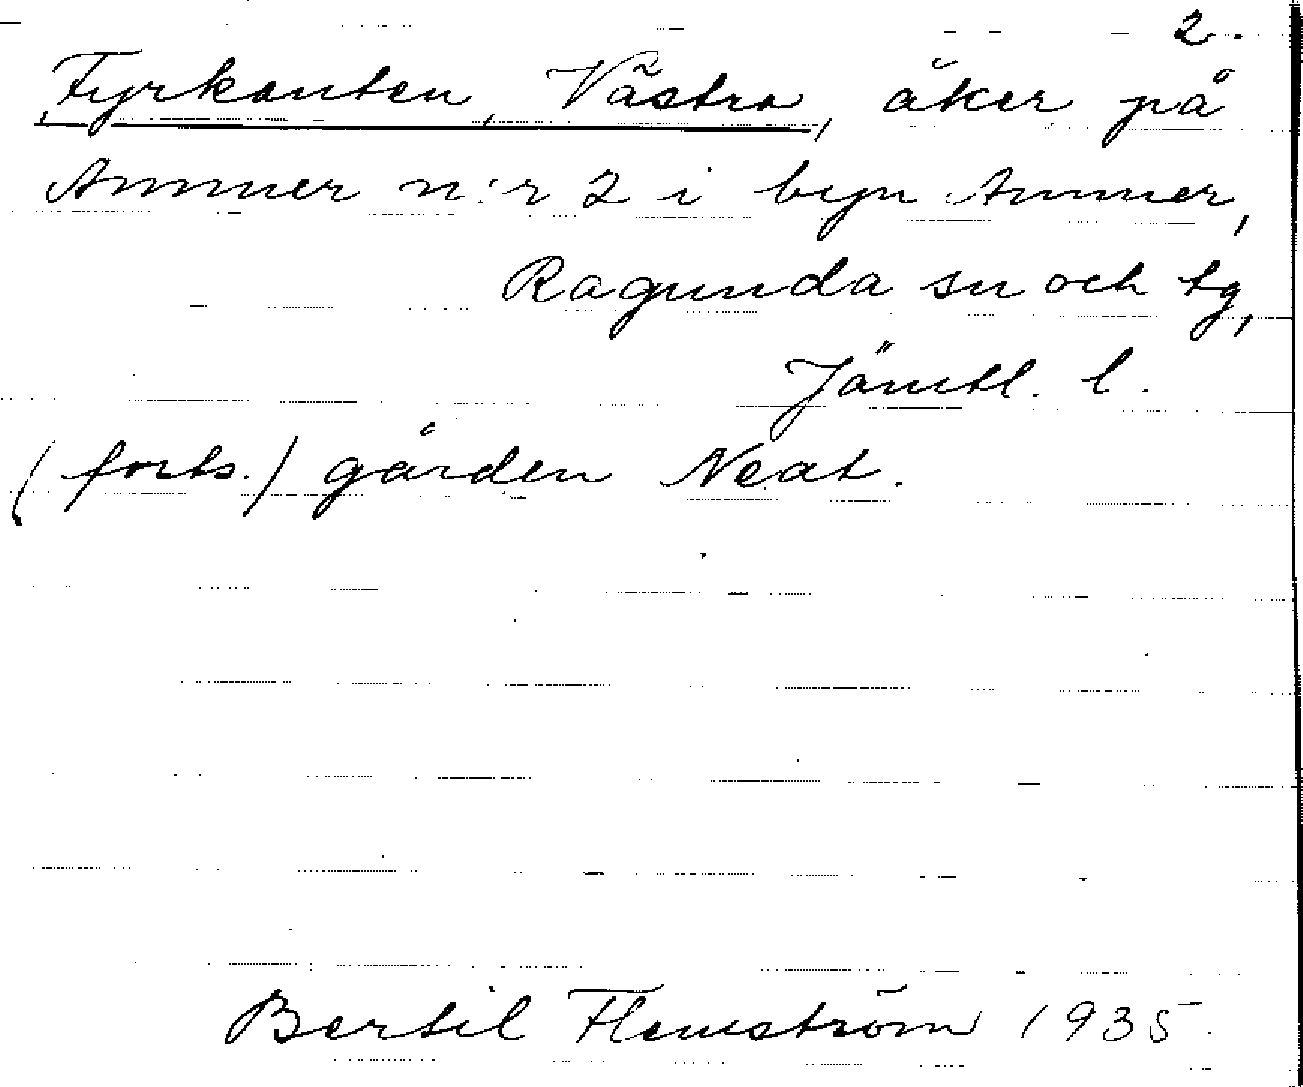 2.
Fyrkanten, Västra, åker på
Ammer n:r 2 i byn Ammer,
Ragunda sn och tg,
Jämtl. l.
(forts.) gården Neat.
Bertil Flemström 1935.